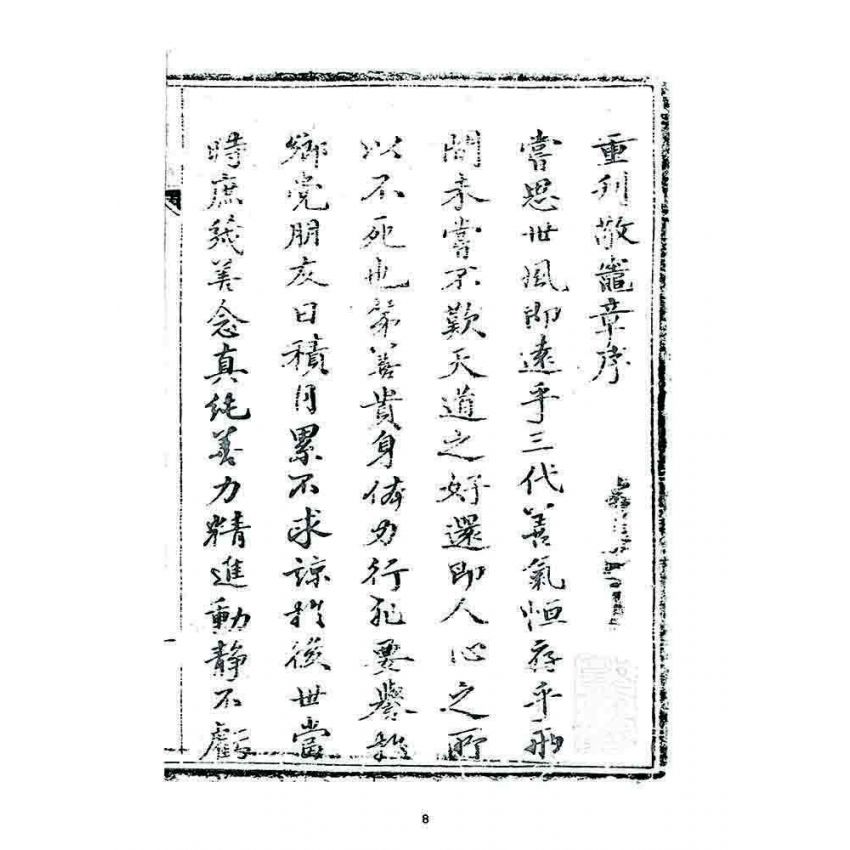 重刋敬竈章序
嘗思世風即遠乎三代善氣恒存乎两
間未嘗不歎天道之好還即人心之所
以不死也第善貴身体力行犯要譽於
鄉党朋友日積月累不求諒於後世當
時庶幾善念真純善力精進動静不虧
8